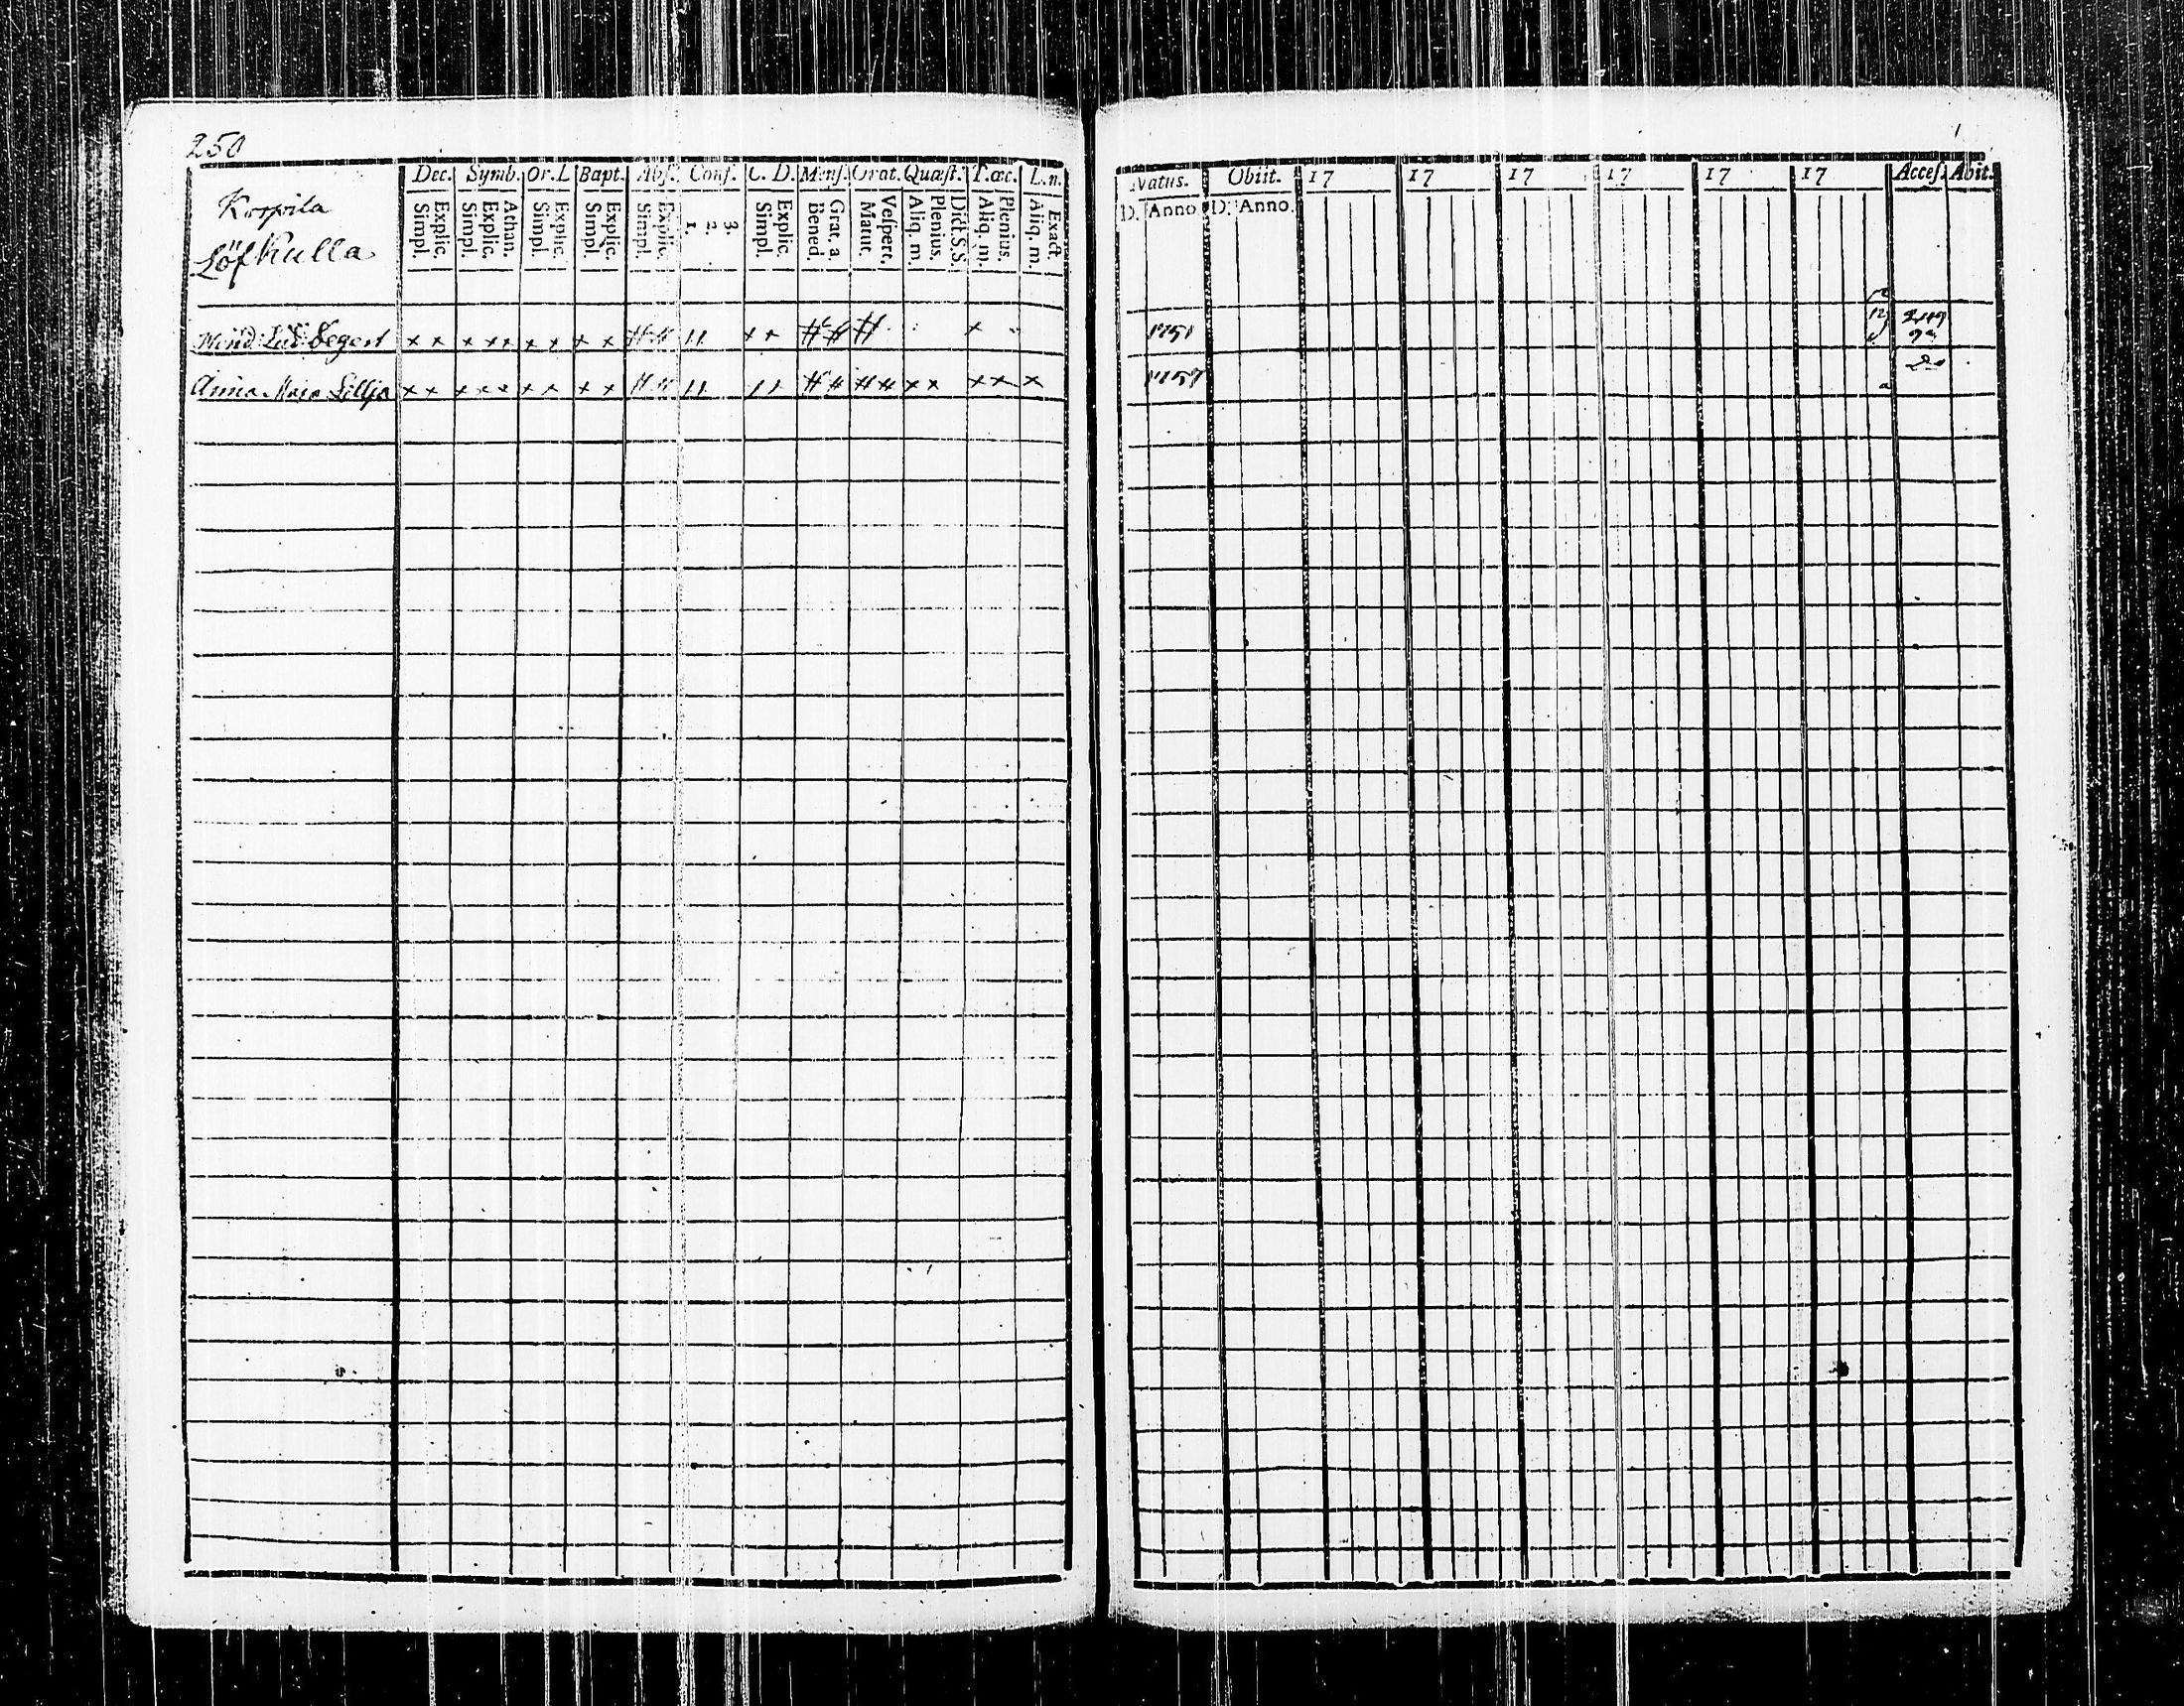 250
Korpila
Löfkulla
Dec. Symb. Or.L Bapt. Abſ. Conf. C. D. Menſ. Orat. Quæſt. T.œc. L.n.
Simpl. Explic. Simpl. Explic. Athan. Simpl. Explic. Simpl. Explic. Simpl. Explic. 1. 2. 3. Simpl. Explic. Bened. Grat. a Matut. Veſpert. Aliq. m. Plenius. Dict.S.S. Aliq. m. Plenius. Aliq. m. Exact.
Segert x x x x x x x x x x x x
Anna Maja Lillja x x x x x x x x x x x x x x
Natus. Obiit. 17 17 17 17 17 17 Acceſ. Abit.
D. Anno D. Anno.
1751 249
1757